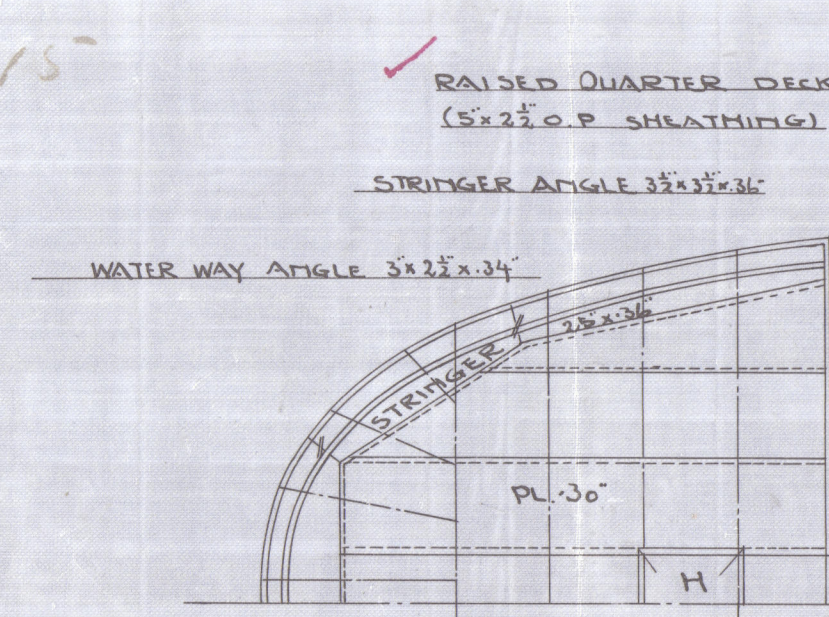 15
RAISED QUARTER DECK
(5"x 2½" O.P SHEATHING)
STRINGER ANGLE 3½"x 3½"x .36"
WATER WAY ANGLE 3"x 2½"x .34"
STRINGER 25"x .36"
PL. .30"
H